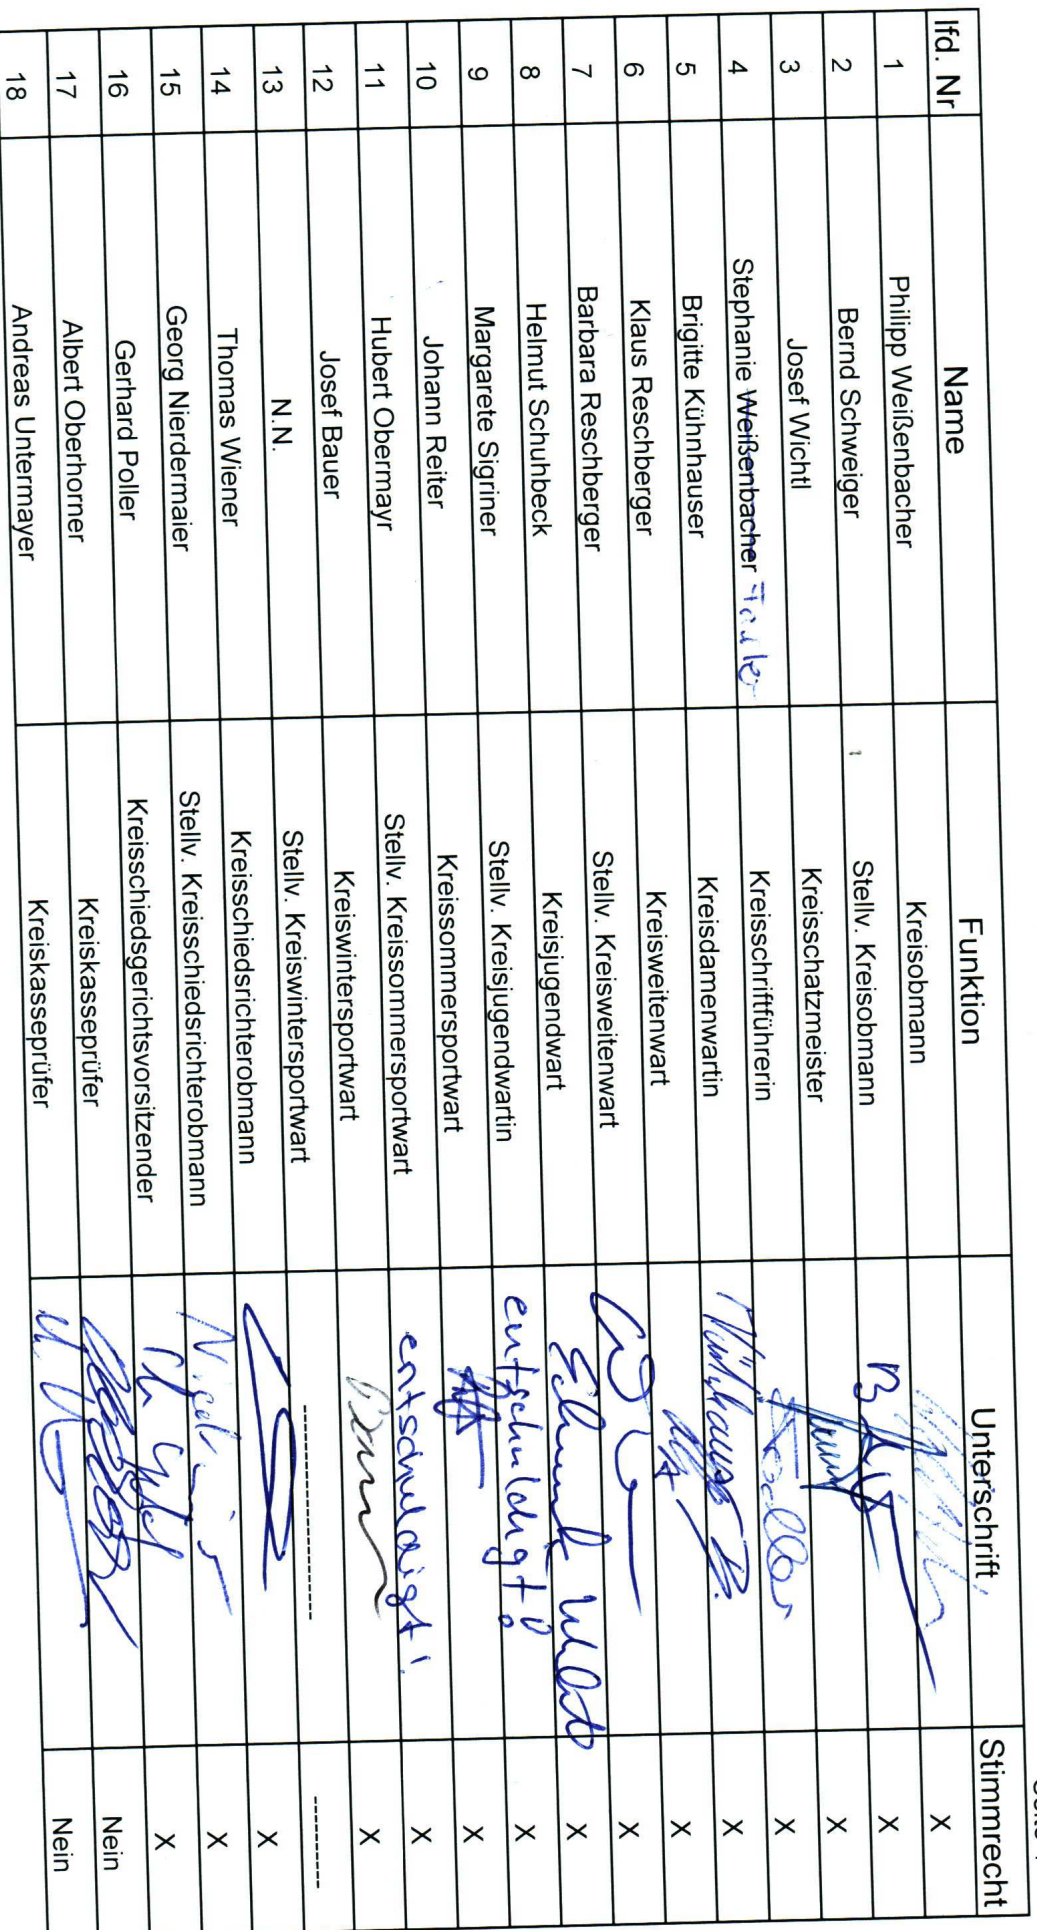 Seite 1
lfd. Nr Name Funktion Unterschrift Stimmrecht
1 Philipp Weißenbacher Kreisobmann X
2 Bernd Schweiger Stellv. Kreisobmann X
3 Josef Wichtl Kreisschatzmeister X
4 Stephanie Weißenbacher Kreisschriftführerin X
5 Brigitte Kühnhauser Kreisdamenwartin Kühnhauser B. X
6 Klaus Reschberger Kreisweitenwart X
7 Barbara Reschberger Stellv. Kreisweitenwart X
8 Helmut Schuhbeck Kreisjugendwart X
9 Margarete Sigriner Stellv. Kreisjugendwartin entschuldigt! X
10 Johann Reiter Kreissommersportwart X
11 Hubert Obermayr Stellv. Kreissommersportwart entschuldigt! X
12 Josef Bauer Kreiswintersportwart X
13 N.N. Stellv. Kreiswintersportwart ---------------------- ----------
14 Thomas Wiener Kreisschiedsrichterobmann X
15 Georg Nierdermaier Stellv. Kreisschiedsrichterobmann X
16 Gerhard Poller Kreisschiedsgerichtsvorsitzender X
17 Albert Oberhorner Kreiskasseprüfer Nein
18 Andreas Untermayer Kreiskasseprüfer Nein